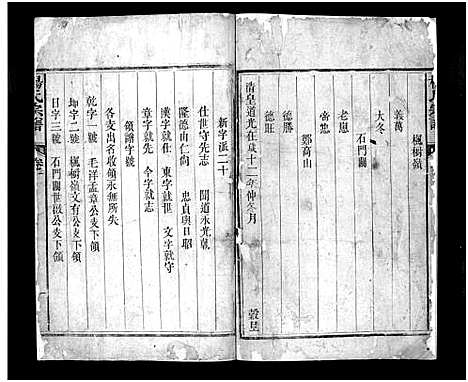 楓樹嶺
義萬
大冬
石門關
老崽
富忠
鄒高山
德勝
德旺
清皇道光壬辰十二年仲冬月
榖旦
新字派二十
仕世守先志 開道永光執
隆德由仁尚 忠貞與日月
漢字就仕 東字就世 文字就守
章字就先 今字就志
各支出名收領永無所失
領譜字號
乾字一號 毛祥孟章公支下領
坤字二號 楓樹嶺文有公支下領
日字三號 石門關世滋公支下領
楊氏宗譜